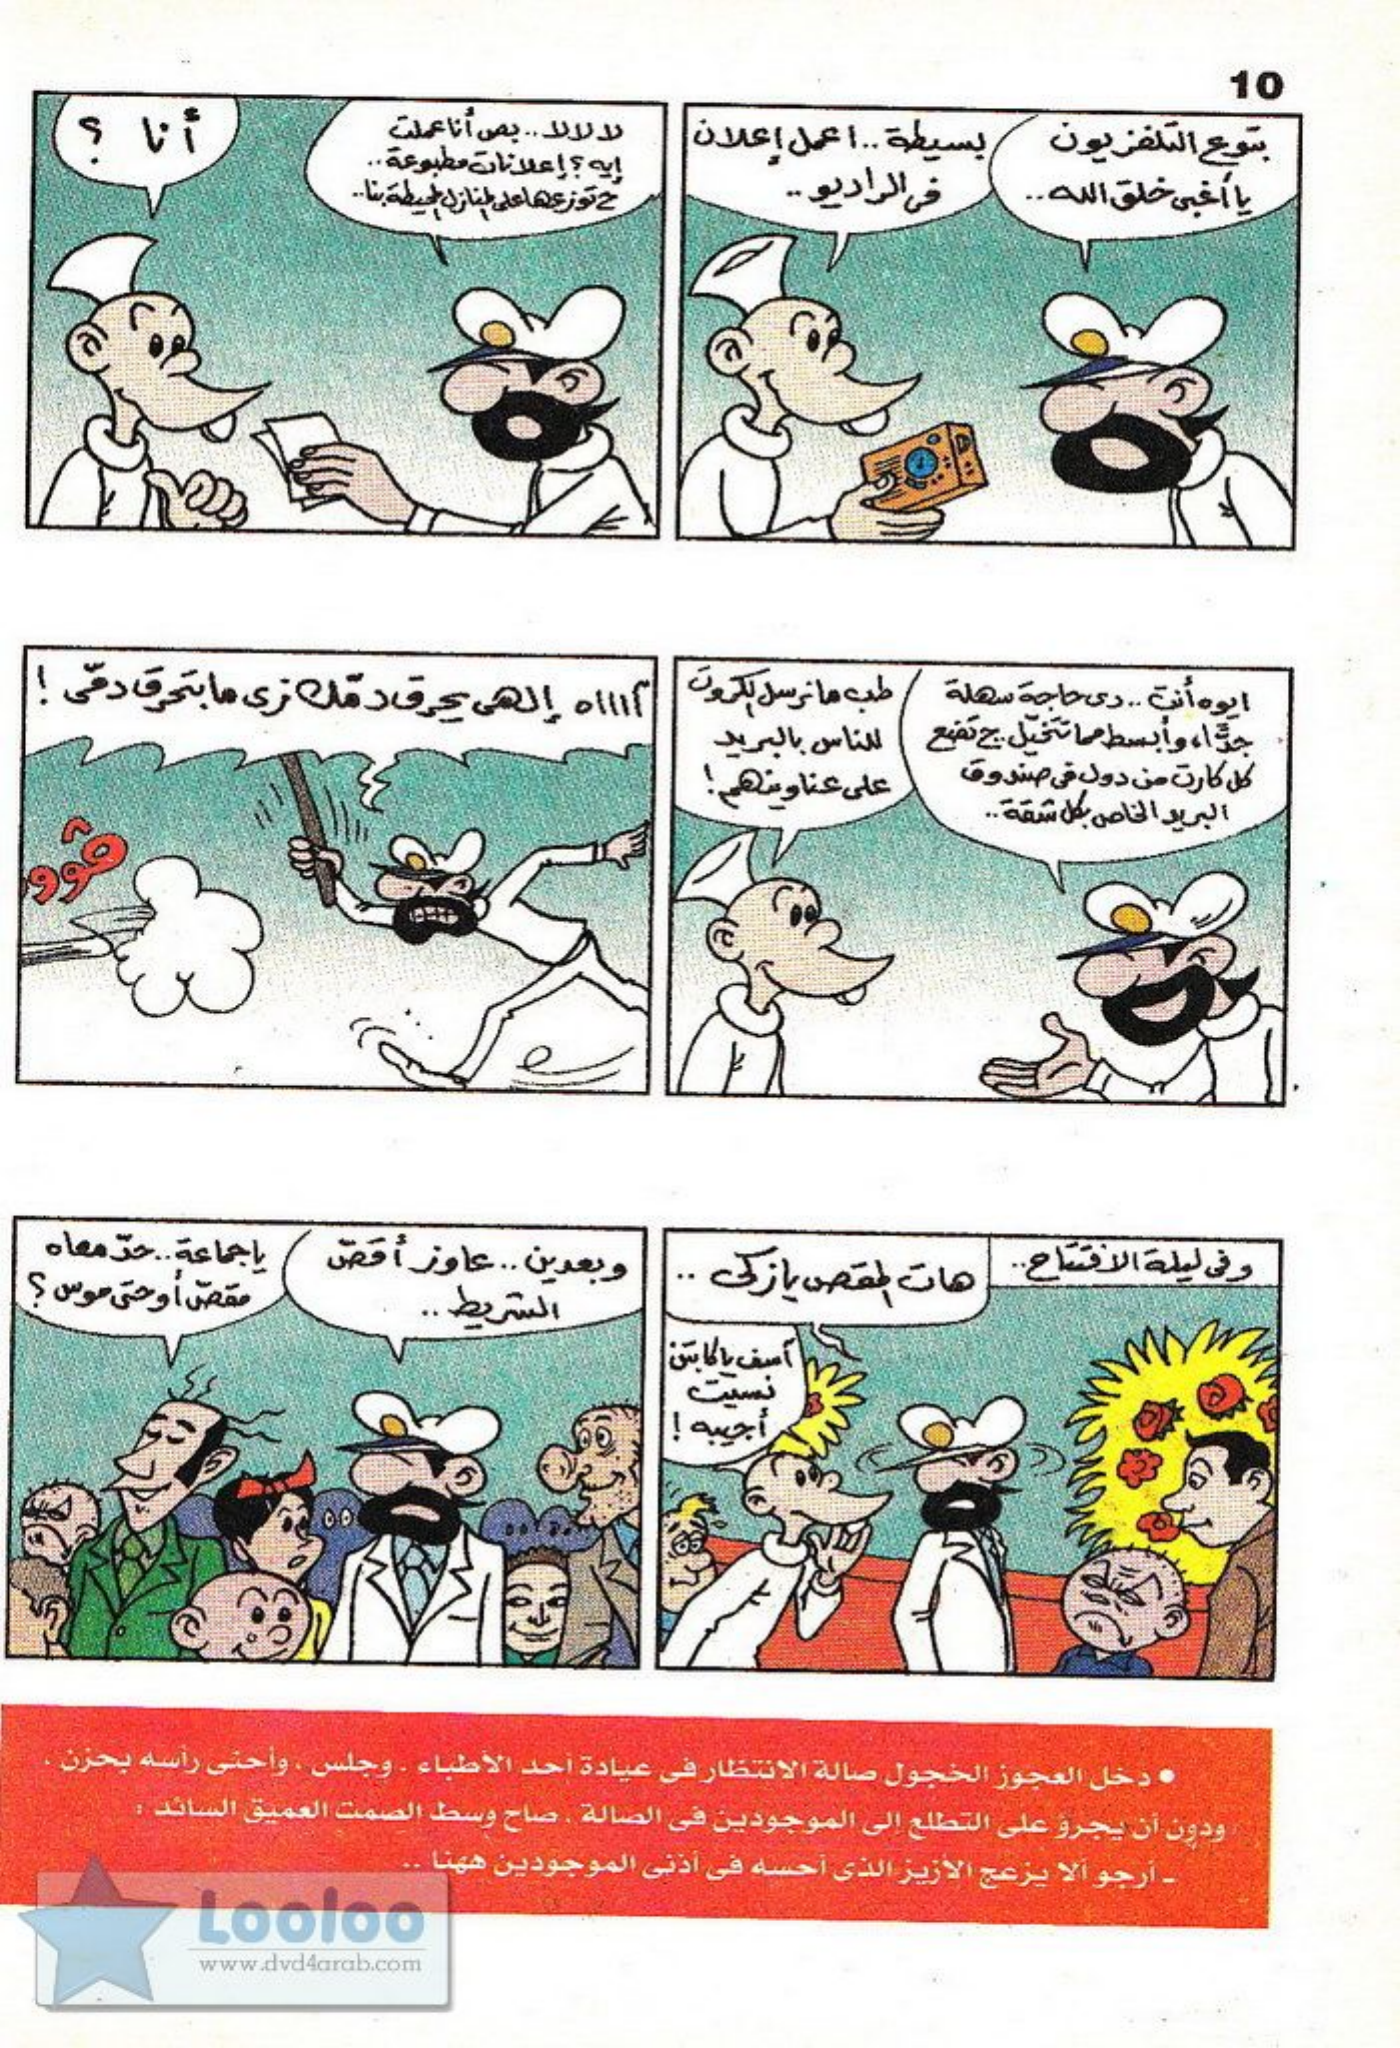 10
بتوع التلفزيون
يا أغبى خلق الله..
بسيطة.. اعمل إعلان
فى الراديو..
لا لا لا.. بص أنا عملت
إيه؟ إعلانات مطبوعة..
ح توزعها على المنازل المحيطة بنا..
أنا ؟
ايوه أنت.. دى حاجة سهلة
جدًّا، وأبسط مما تتخيّل. ح تضع
كل كارت من دول فى صندوق
البريد الخاص بكل شقة..
طب ما نرسل الكروت
للناس بالبريد
على عناوينهم!
آاااه إلهى يحرق دمّك زى ما بتحرق دمّى !
ڤوو
وفى ليلة الافتتاح..
هات المقص يا زكى ..
آسف يا كابتن
نسيت
أجيبه !
وبعدين.. عاوز أقصّ
الشريط ..
يا جماعة.. حدّ معاه
مقصّ أو حتى موس ؟
• دخل العجوز الخجول صالة الانتظار فى عيادة أحد الأطباء . وجلس ، وأحنى رأسه بحزن ،
ودون أن يجرؤ على التطلع إلى الموجودين فى الصالة . صاح وسط الصمت العميق السائد :
ـ أرجو ألا يزعج الأزيز الذى أحسه فى أذنى الموجودين ههنا ..
Looloo
www.dvd4arab.com